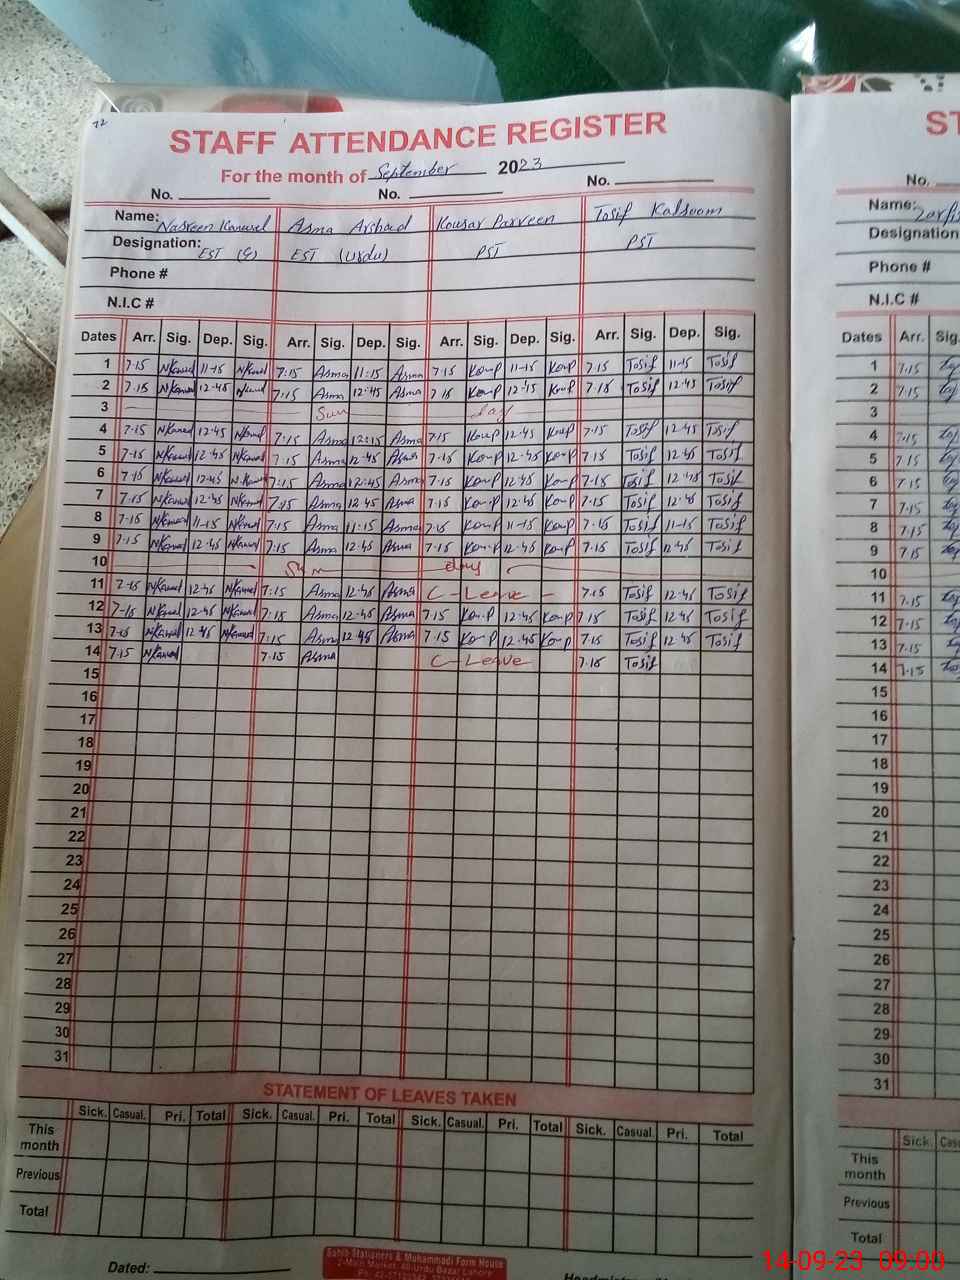 72
STAFF ATTENDANCE REGISTER
For the month of September 2023
No. No. No.
Name: Nasreen Kanwal Asma Arshad Kousar Parveen Tosif Kalsoom
Designation: EST (G) EST (Urdu) PST PST
Phone #
N.I.C #
Dates Arr. Sig. Dep. Sig. Arr. Sig. Dep. Sig. Arr. Sig. Dep. Sig. Arr. Sig. Dep. Sig.
1 7.15 NKanwal 11-15 NKanwal 7:15 Asma 11:15 Asma 7-15 Kou-P 11-15 Kou-P 7.15 Tosif 11-15 Tosif
2 7.15 NKanwal 12-45 NKanwal 7:15 Asma 12:45 Asma 7.15 Kou-P 12-45 Kou-P 7.15 Tosif 12.45 Tosif
3 Sun day
4 7-15 NKanwal 12:45 NKanwal 7:15 Asma 12:15 Asma 7.15 Kou-P 12-45 Kou-P 7.15 Tosif 12.45 Tosif
5 7-15 NKanwal 12-45 NKanwal 7:15 Asma 12.45 Asma 7-15 Kou-P 12-45 Kou-P 7.15 Tosif 12.45 Tosif
6 7-15 NKanwal 12-45 NKanwal 7:15 Asma 12:45 Asma 7-15 Kou-P 12-45 Kou-P 7-15 Tosif 12.45 Tosif
7 7-15 NKanwal 12-45 NKanwal 7:15 Asma 12.45 Asma 7-15 Kou-P 12-45 Kou-P 7-15 Tosif 12.45 Tosif
8 7-15 NKanwal 11-15 NKanwal 7:15 Asma 11:15 Asma 7.15 Kou-P 11-15 Kou-P 7.15 Tosif 11-15 Tosif
9 7-15 NKanwal 12.45 NKanwal 7:15 Asma 12.45 Asma 7-15 Kou-P 12-45 Kou-P 7.15 Tosif 12.45 Tosif
10 Sun day
11 7-15 NKanwal 12-45 NKanwal 7:15 Asma 12.45 Asma C-Leave - 7.15 Tosif 12.45 Tosif
12 7-15 NKanwal 12-45 NKanwal 7:15 Asma 12-45 Asma 7.15 Kou-P 12.45 Kou-P 7.15 Tosif 12.45 Tosif
13 7-15 NKanwal 12-45 NKanwal 7:15 Asma 12 45 Asma 7.15 Kou-P 12.45 Kou-P 7.15 Tosif 12.45 Tosif
14 7.15 NKanwal 7.15 Asma C-Leave 7.15 Tosif
15
16
17
18
19
20
21
22
23
24
25
26
27
28
29
30
31
STATEMENT OF LEAVES TAKEN
Sick. Casual. Pri. Total Sick. Casual. Pri. Total Sick. Casual. Pri. Total Sick. Casual. Pri. Total
This month
Previous
Total
Dated:
Sahib Stationers & Muhammadi Form House
ST
No.
Name:
Designation
Phone #
N.I.C #
Dates Arr. Sig.
1 7.15
2 7.15
3
4 7.15
5 7.15
6 7.15
7 7.15
8 7.15
9 7.15
10
11 7.15
12 7.15
13 7.15
14 7.15
15
16
17
18
19
20
21
22
23
24
25
26
27
28
29
30
31
Sick.
This month
Previous
Total
14-09-23 09:00